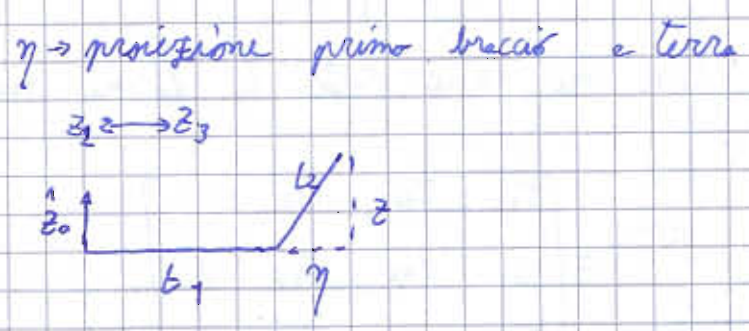 η → proiezione primo braccio a terra
z₂ ⟷ z₃
ẑ₀
L₂
z
L₁
η